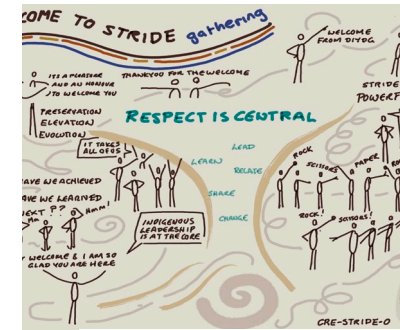 COME TO STRIDE gathering
WELCOME
FROM DIYDG
IT'S A PLEASURE
AND AN HONOUR
TO WELCOME YOU
THANKYOU FOR THE WELCOME
STRIDE
POWERF
PRESERVATION
ELEVATION
EVOLUTION
RESPECT IS CENTRAL
IT TAKES
ALL OF US
LEAD
LEARN
RELATE
SHARE
CHANGE
ROCK
SCISSORS
PAPER
AVE WE ACHIEVED
AVE WE LEARNED
EXT ??
Hmm!
INDIGENOUS
LEADERSHIP
IS AT THE CORE
ROCK!
SCISSORS!
WELCOME & I AM SO
GLAD YOU ARE HERE
CRE-STRIDE-O